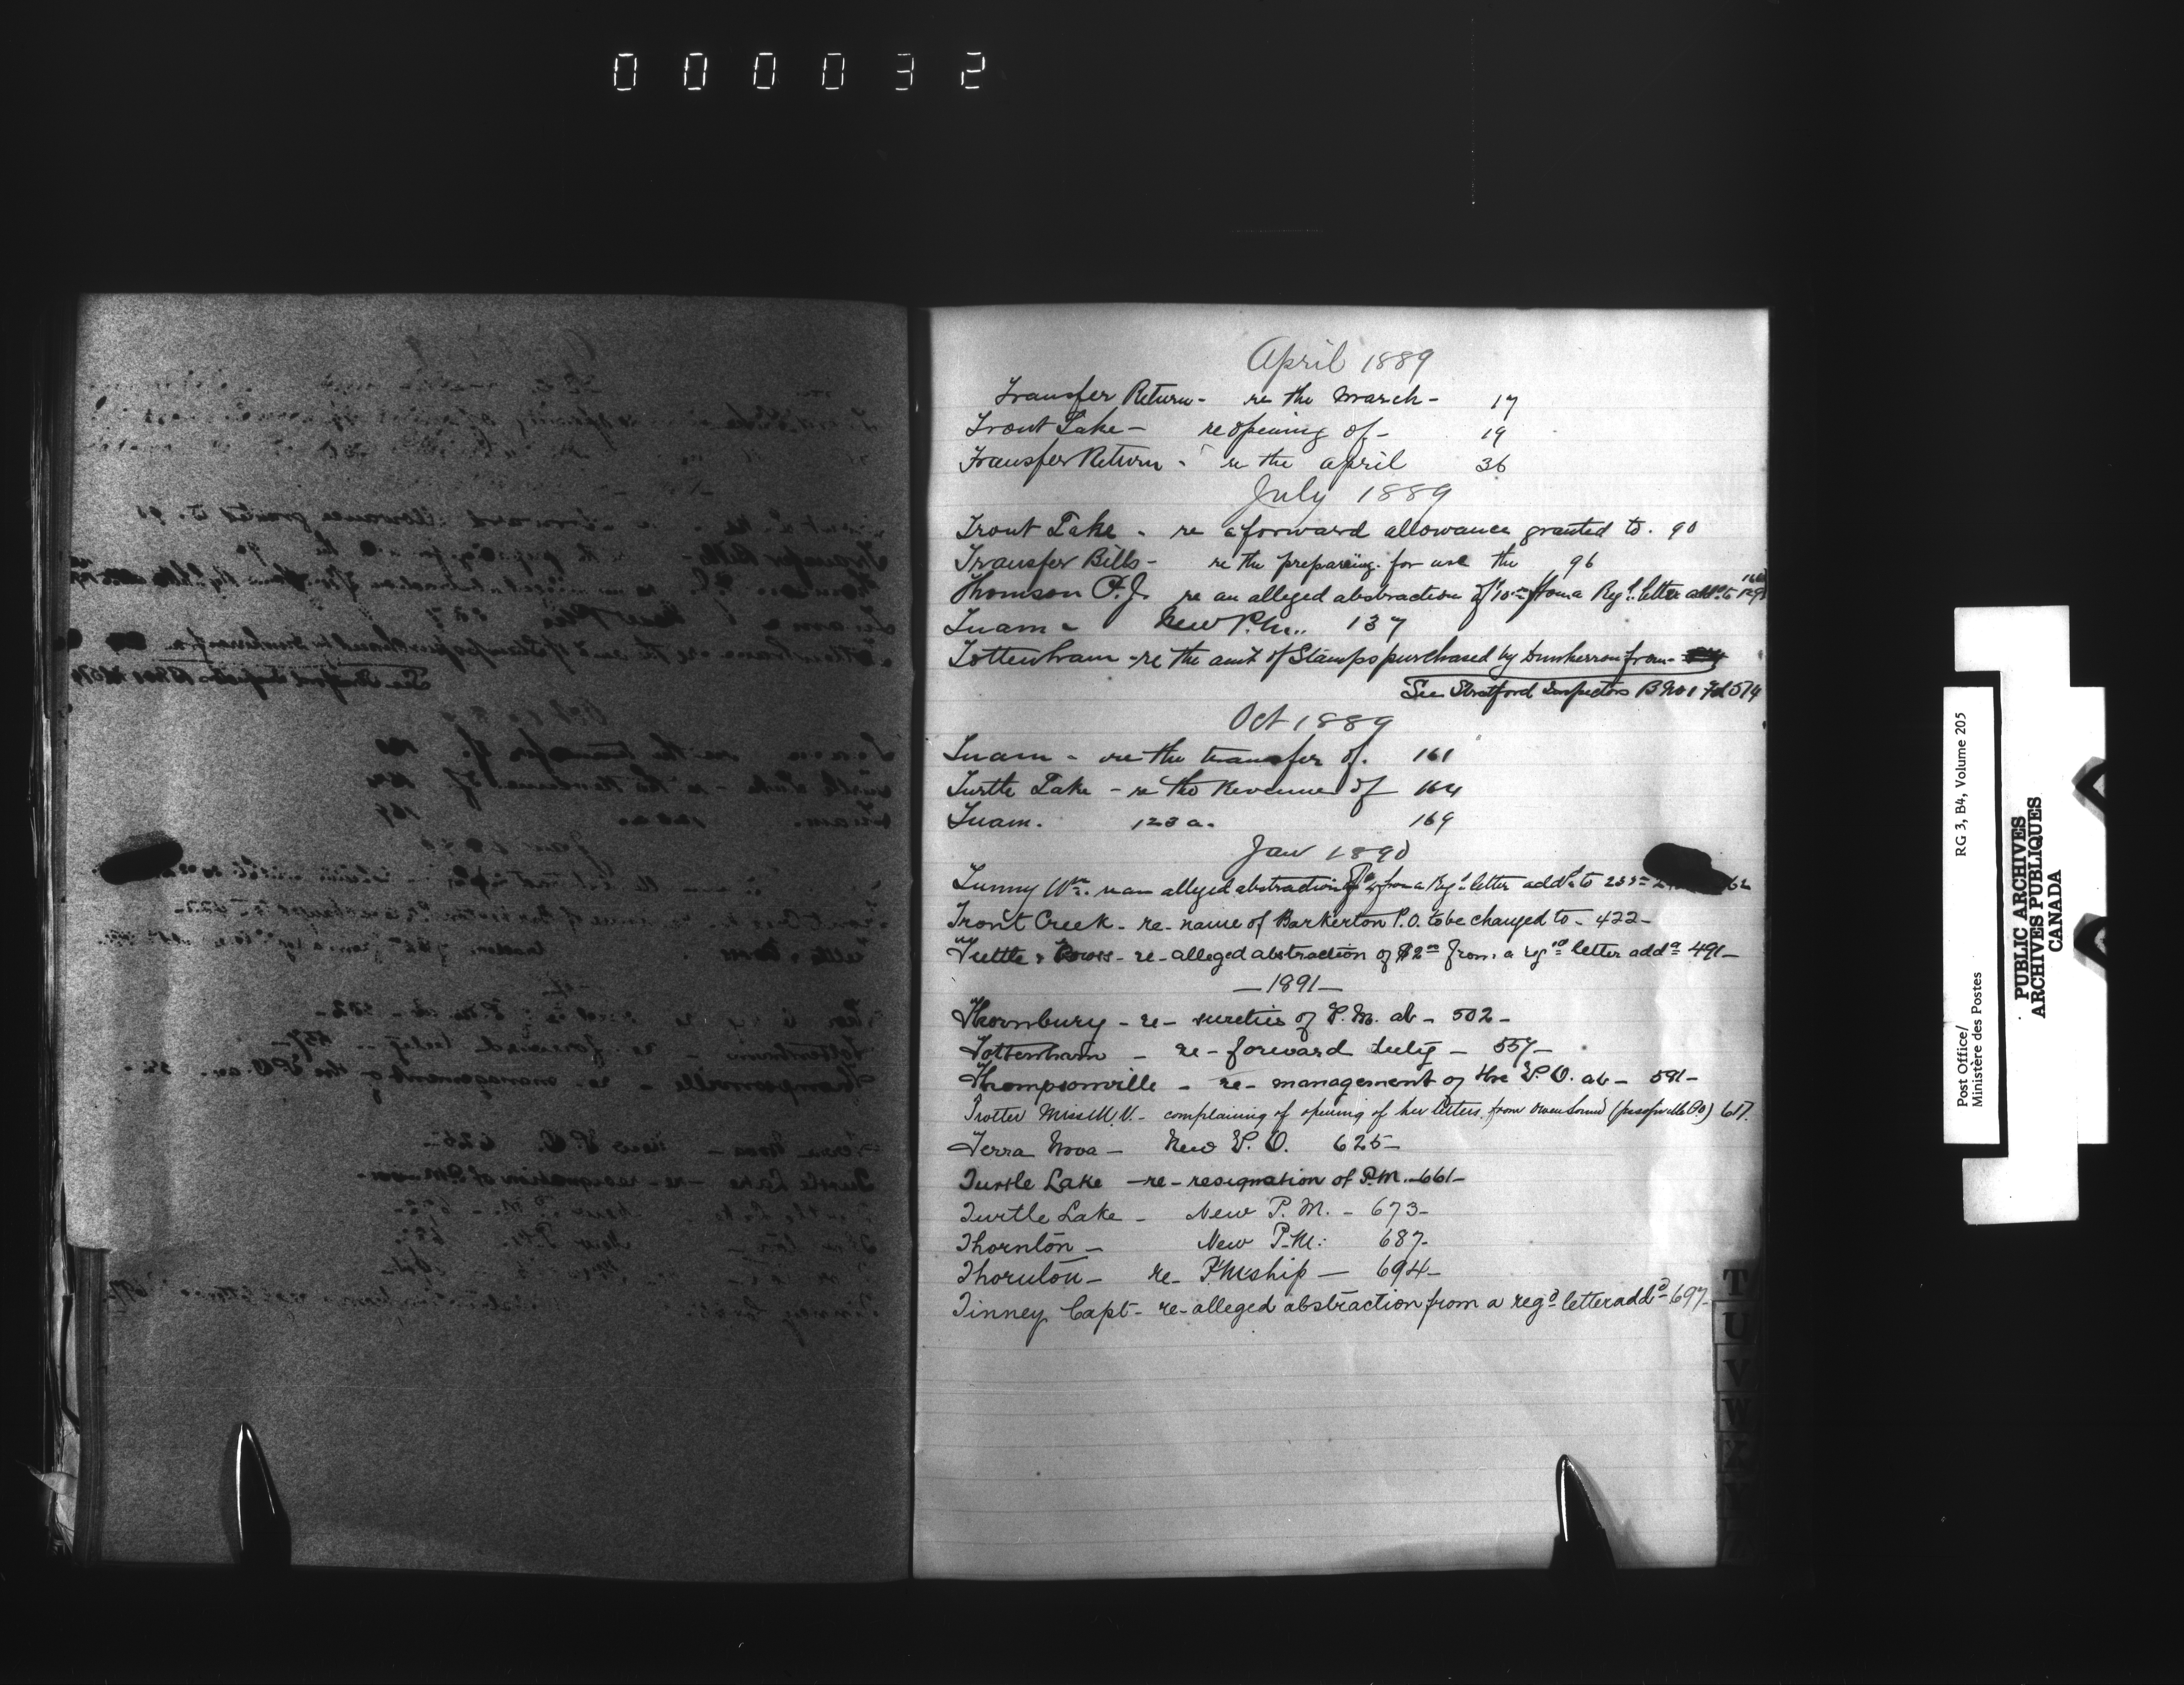 000032
April 1889
Transfer Return - re the March - 17
Trout Lake - re opening of - 19
Transfer Return - re the April 36
July 1889
Trout Lake - re a forward allowance granted to. 90
Transfer Bills - re the preparing for use the 96
Thomson P.J. re an alleged abstraction of from a Regd. letter addd. to 129
Tuam - New P.M. 137
Tottenham - re the amt of Stamps purchased by Dunkerron from -
See Stratford Inspectors B No 1 Fol 574
Oct 1889
Tuam - re the transfer of. 161
Turtle Lake - re the Revenue of 164
Tuam. 123 a. 169
Jan 1890
Tunny Wm. re an alleged abstraction of from a Regd. letter addd. to
Trout Creek - re - name of Barkerton P.O. to be changed to - 422 -
Tuttle & - re - alleged abstraction of $2 00 from a regd letter addd 491 -
- 1891 -
Thornbury - re - sureties of P.M. at - 502 -
Tottenham - re - forward duty - 557 -
Thompsonville - re - management of the P.O. at - 591 -
Trotter Miss M.V. - complaining of opening of her letters from Owen Sound 617.
Terra Nova - New P.O. 625 -
Turtle Lake - re - resignation of P.M. - 661 -
Turtle Lake - New P.M. - 673 -
Thornton - New P.M. 687 -
Thornton - re - PMship - 694 -
Tinney Capt - re - alleged abstraction from a regd letter addd - 697 -
T
U
V
W
Post Office/
Ministère des Postes
RG 3, B4, Volume 205
PUBLIC ARCHIVES
ARCHIVES PUBLIQUES
CANADA